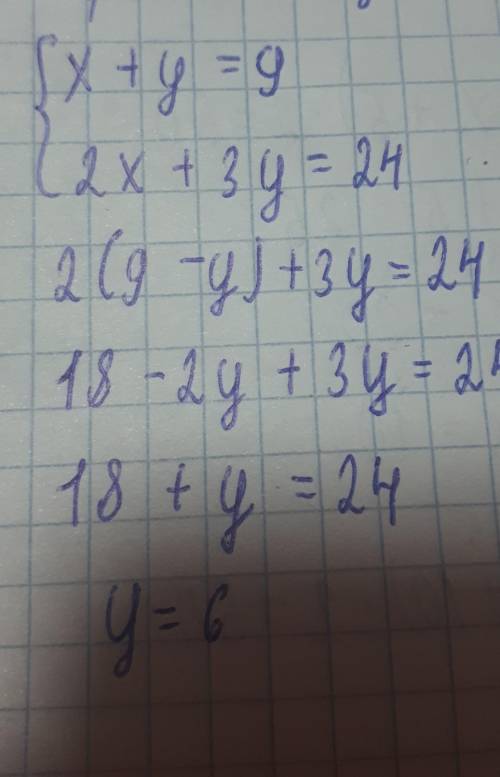 {x + y = 9
2x + 3y = 24
2(9 - y) + 3y = 24
18 - 2y + 3y = 24
18 + y = 24
y = 6